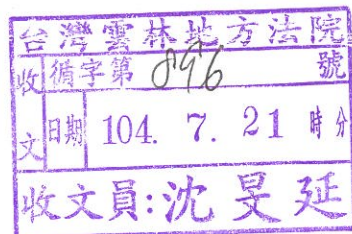 台灣雲林地方法院
收文
循字第896號
日期 104. 7. 21 時分
收文員:沈旻延